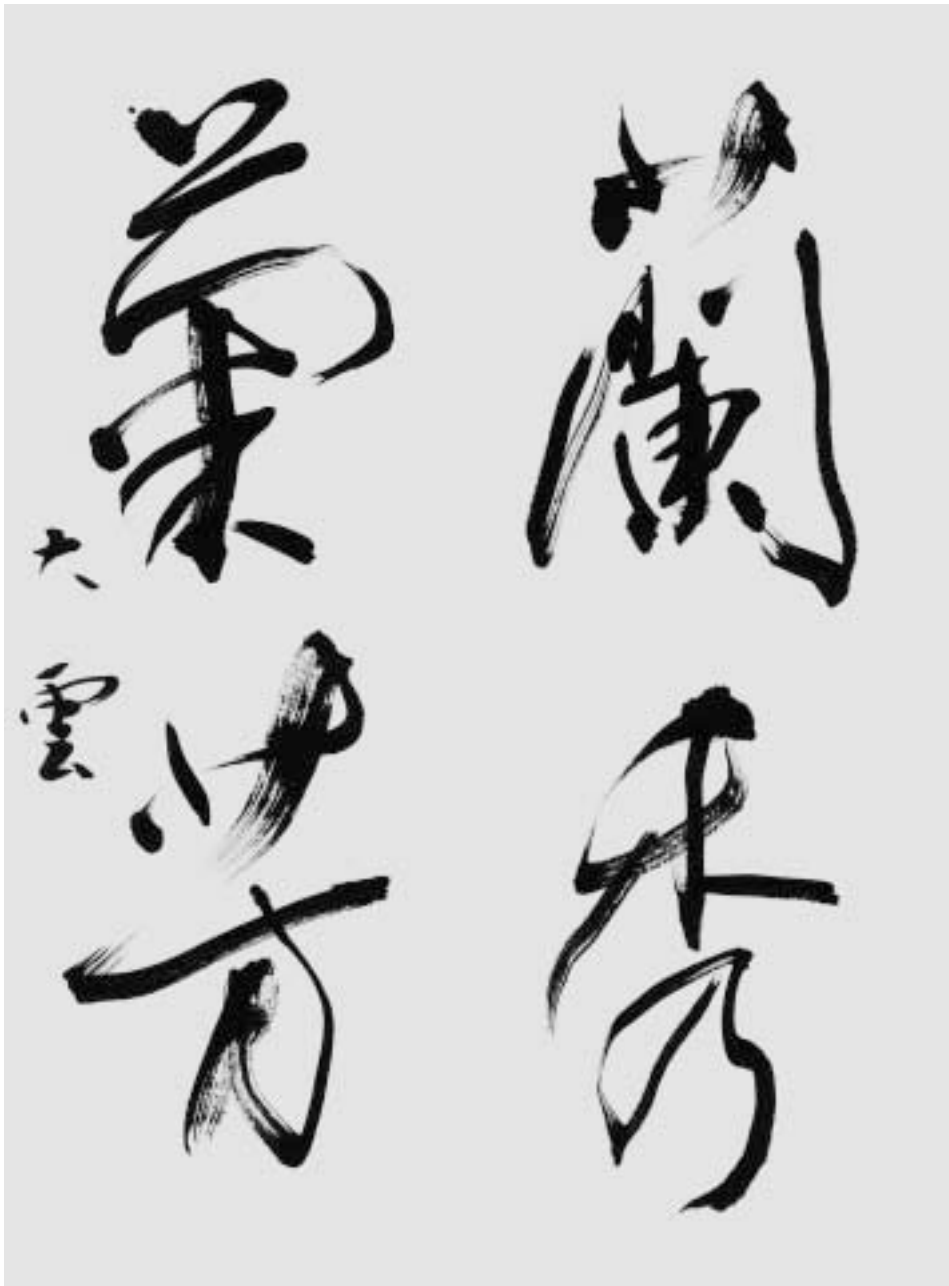 蘭秀
菊芳
大雲